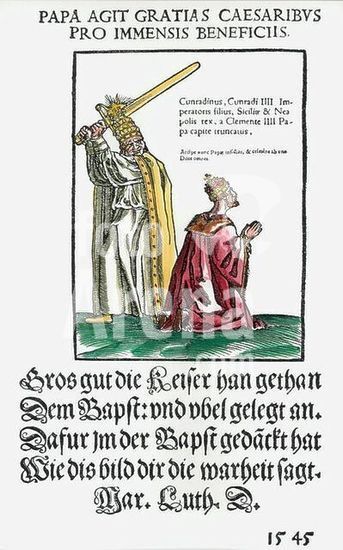 PAPA AGIT GRATIAS CAESARIBVS
PRO IMMENSIS BENEFICIIS.
Cunradinus, Cunradi IIII Im-
peratoris filius, Siciliæ & Nea
polis rex, a Clemente IIII Pa-
pa capite truncatus,
Gros gut die Keiser han gethan
Dem Bapst: vnd vbel gelegt an.
Dafur jm der Bapst gedāckt hat
Wie dis bild dir die warheit sagt.
Mar. Luth. D.
1545